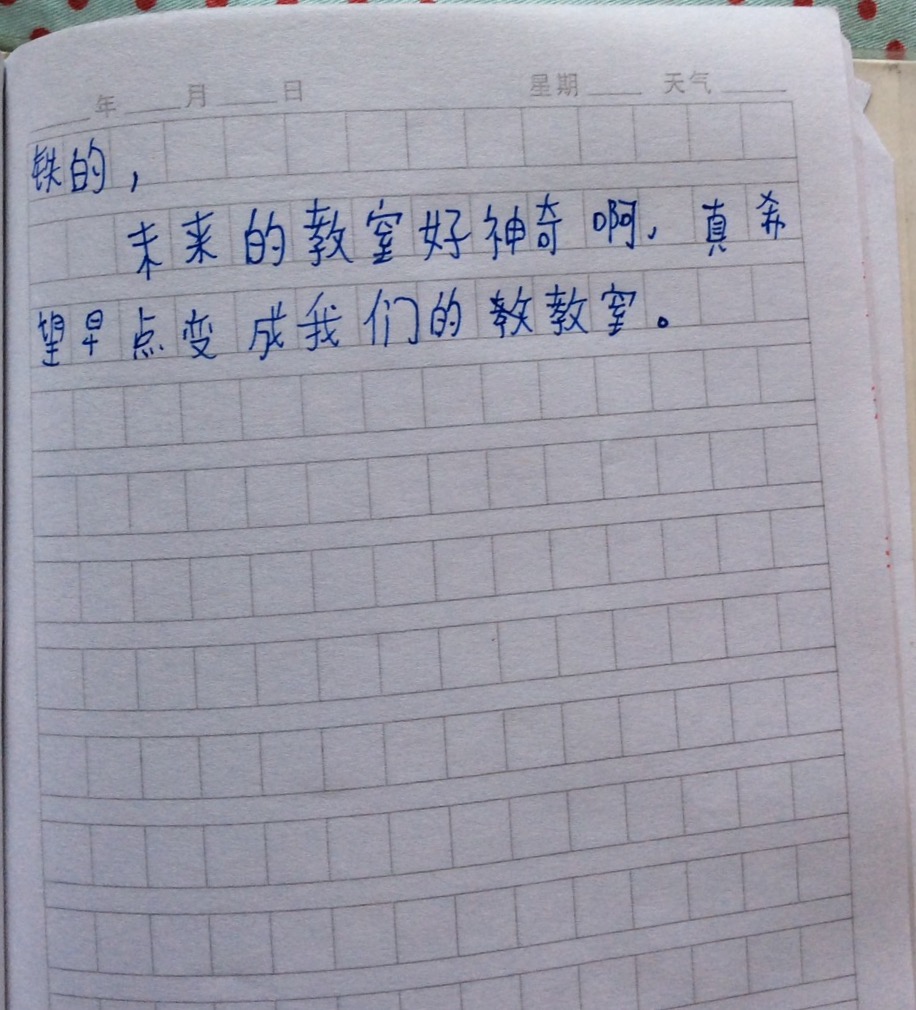 ____年____月____日 星期____ 天气____
铁的，
未来的教室好神奇啊，真希
望早点变成我们的教教室。